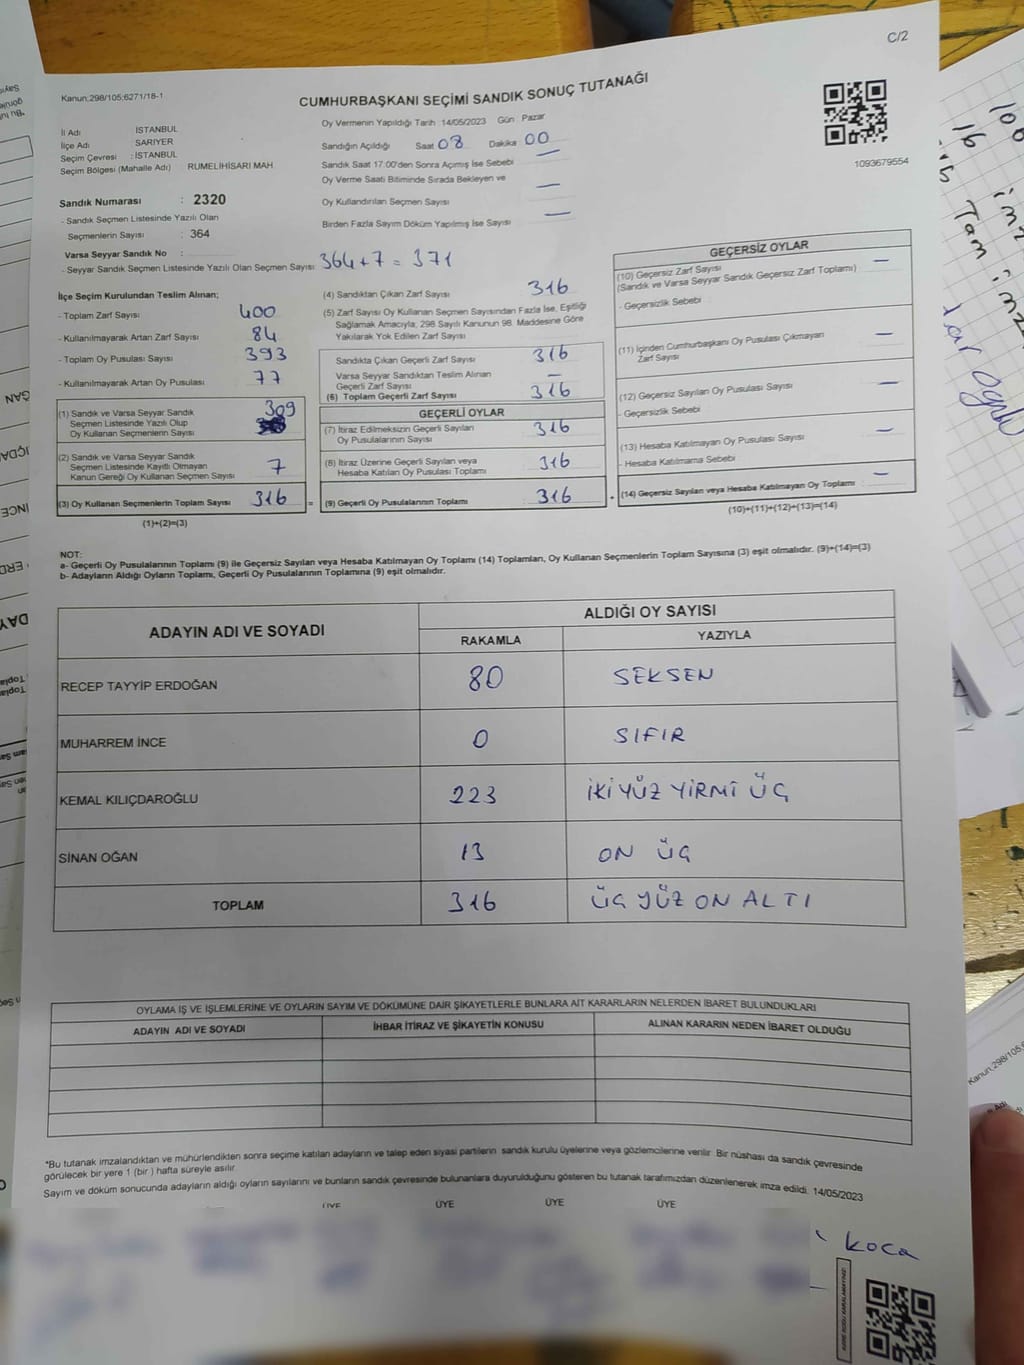 C/2
Kanun;298/105;6271/18-1
CUMHURBAŞKANI SEÇİMİ SANDIK SONUÇ TUTANAĞI
İl Adı İSTANBUL
İlçe Adı SARIYER
Seçim Çevresi : İSTANBUL
Seçim Bölgesi (Mahalle Adı) RUMELİHİSARI MAH.
Sandık Numarası : 2320
- Sandık Seçmen Listesinde Yazılı Olan
Seçmenlerin Sayısı : 364
Varsa Seyyar Sandık No :
- Seyyar Sandık Seçmen Listesinde Yazılı Olan Seçmen Sayısı 364+7 = 371
Oy Vermenin Yapıldığı Tarih :14/05/2023 Gün Pazar
Sandığın Açıldığı Saat 08 Dakika 00
Sandık Saat 17:00'den Sonra Açımış İse Sebebi —
Oy Verme Saati Bitiminde Sırada Bekleyen ve
Oy Kullandırılan Seçmen Sayısı —
Birden Fazla Sayım Döküm Yapılmış İse Sayısı —
1093679554
İlçe Seçim Kurulundan Teslim Alınan;
- Toplam Zarf Sayısı 400
- Kullanılmayarak Artan Zarf Sayısı 84
- Toplam Oy Pusulası Sayısı 393
- Kullanılmayarak Artan Oy Pusulası 77
(1) Sandık ve Varsa Seyyar Sandık 309
Seçmen Listesinde Yazılı Olup
Oy Kullanan Seçmenlerin Sayısı
(2) Sandık ve Varsa Seyyar Sandık
Seçmen Listesinde Kayıtlı Olmayan 7
Kanun Gereği Oy Kullanan Seçmen Sayısı
(3) Oy Kullanan Seçmenlerin Toplam Sayısı 316 =
(1)+(2)=(3)
(4) Sandıktan Çıkan Zarf Sayısı 316
(5) Zarf Sayısı Oy Kullanan Seçmen Sayısından Fazla İse, Eşitliği
Sağlamak Amacıyla; 298 Sayılı Kanunun 98. Maddesine Göre
Yakılarak Yok Edilen Zarf Sayısı
Sandıkta Çıkan Geçerli Zarf Sayısı 316
Varsa Seyyar Sandıktan Teslim Alınan
Geçerli Zarf Sayısı —
(6) Toplam Geçerli Zarf Sayısı 316
GEÇERLİ OYLAR
(7) İtiraz Edilmeksizin Geçerli Sayılan 316
Oy Pusulalarının Sayısı
(8) İtiraz Üzerine Geçerli Sayılan veya 316
Hesaba Katılan Oy Pusulası Toplamı
(9) Geçerli Oy Pusulalarının Toplamı 316 +
GEÇERSİZ OYLAR
(10) Geçersiz Zarf Sayısı —
(Sandık ve Varsa Seyyar Sandık Geçersiz Zarf Toplamı)
- Geçersizlik Sebebi
(11) İçinden Cumhurbaşkanı Oy Pusulası Çıkmayan —
Zarf Sayısı
(12) Geçersiz Sayılan Oy Pusulası Sayısı —
- Geçersizlik Sebebi
(13) Hesaba Katılmayan Oy Pusulası Sayısı —
- Hesaba Katılmama Sebebi
(14) Geçersiz Sayılan veya Hesaba Katılmayan Oy Toplamı —
(10)+(11)+(12)+(13)=(14)
NOT:
a- Geçerli Oy Pusulalarının Toplamı (9) ile Geçersiz Sayılan veya Hesaba Katılmayan Oy Toplamı (14) Toplamları, Oy Kullanan Seçmenlerin Toplam Sayısına (3) eşit olmalıdır. (9)+(14)=(3)
b- Adayların Aldığı Oyların Toplamı, Geçerli Oy Pusulalarının Toplamına (9) eşit olmalıdır.
ADAYIN ADI VE SOYADI ALDIĞI OY SAYISI
RAKAMLA YAZIYLA
RECEP TAYYİP ERDOĞAN 80 SEKSEN
MUHARREM İNCE 0 SIFIR
KEMAL KILIÇDAROĞLU 223 İKİ YÜZ YİRMİ ÜÇ
SİNAN OĞAN 13 ON ÜÇ
TOPLAM 316 ÜÇ YÜZ ON ALTI
OYLAMA İŞ VE İŞLEMLERİNE VE OYLARIN SAYIM VE DÖKÜMÜNE DAİR ŞİKAYETLERLE BUNLARA AİT KARARLARIN NELERDEN İBARET BULUNDUKLARI
ADAYIN ADI VE SOYADI İHBAR İTİRAZ VE ŞİKAYETİN KONUSU ALINAN KARARIN NEDEN İBARET OLDUĞU
*Bu tutanak imzalandıktan ve mühürlendikten sonra seçime katılan adayların ve talep eden siyasi partilerin sandık kurulu üyelerine veya gözlemcilerine verilir. Bir nüshası da sandık çevresinde
görülecek bir yere 1 (bir ) hafta süreyle asılır.
Sayım ve döküm sonucunda adayların aldığı oyların sayılarını ve bunların sandık çevresinde bulunanlara duyurulduğunu gösteren bu tutanak tarafımızdan düzenlenerek imza edildi. 14/05/2023
ÜYE ÜYE ÜYE ÜYE
koca
16 Tam
Kanun;298/105;6